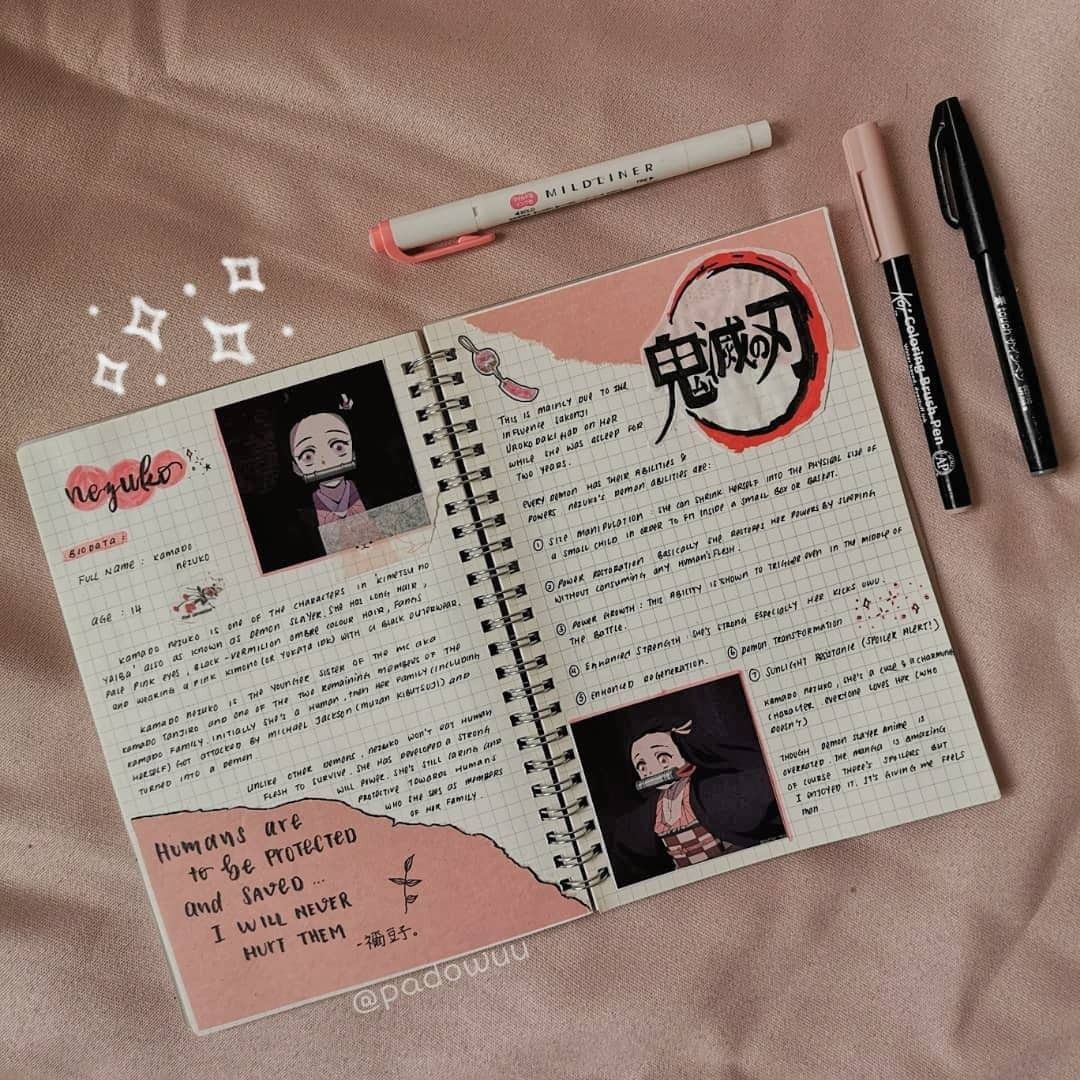 nezuko
BIODATA:
FULL NAME : KAMADO
NEZUKO
AGE : 14
KAMADO NEZUKO IS ONE OF THE CHARACTERS IN 'KIMETSU NO
YAIBA', ALSO AS KNOWN AS DEMON SLAYER. SHE HAS LONG HAIR,
PALE PINK EYES, BLACK-VERMILION OMBRE COLOUR HAIR, FANGS
AND WEARING A PINK KIMONO (OR YUKATA IDK) WITH A BLACK OUTERWEAR.
KAMADO NEZUKO IS THE YOUNGER SISTER OF THE MC AKA
KAMADO TANJIRO AND ONE OF THE TWO REMAINING MEMBERS OF THE
KAMADO FAMILY. INITIALLY SHE'S A HUMAN, THEN HER FAMILY (INCLUDING
HERSELF) GOT ATTACKED BY MICHAEL JACKSON (MUZAN KIBUTSUJI) AND
TURNED INTO A DEMON.
UNLIKE OTHER DEMONS, NEZUKO WON'T EAT HUMAN
FLESH TO SURVIVE. SHE HAS DEVELOPED A STRONG
WILL POWER. SHE'S STILL CARING AND
PROTECTIVE TOWARDS HUMANS
WHO SHE SEES AS MEMBERS
OF HER FAMILY.
HUMANS ARE
TO BE PROTECTED
AND SAVED...
I WILL NEVER
HURT THEM
-禰豆子。
鬼滅の刃
THIS IS MAINLY DUE TO THE
INFLUENCE SAKONJI
UROKODAKI HAD ON HER
WHILE SHE WAS ASLEEP FOR
TWO YEARS.
EVERY DEMON HAS THEIR ABILITIES &
POWERS NEZUKO'S DEMON ABILITIES ARE:
① SIZE MANIPULATION : SHE CAN SHRINK HERSELF INTO THE PHYSICAL SIZE OF
A SMALL CHILD IN ORDER TO FIT INSIDE A SMALL BOX OR BASKET.
② POWER RESTORATION : BASICALLY SHE RESTORES HER POWERS BY SLEEPING
WITHOUT CONSUMING ANY HUMAN'S FLESH.
③ POWER GROWTH : THIS ABILITY IS SHOWN TO TRIGGER EVEN IN THE MIDDLE OF
THE BATTLE.
④ ENHANCED STRENGTH : SHE'S STRONG ESPECIALLY HER KICKS UWU.
⑤ ENHANCED REGENERATION. ⑥ DEMON TRANSFORMATION
⑦ SUNLIGHT RESISTANCE (SPOILER ALERT!)
KAMADO NEZUKO, SHE'S A CUTE & A CHARMING
CHARACTER. EVERYONE LOVES HER (WHO
DOESN'T)
THOUGH DEMON SLAYER ANIME IS
OVERRATED. THE MANGA IS AMAZING
OF COURSE THERE'S SPOILERS BUT
I ENJOYED IT. IT'S GIVING ME FEELS
MAN
MILDLINER
Koi Coloring Brush Pen
AP
touch
@padowuu